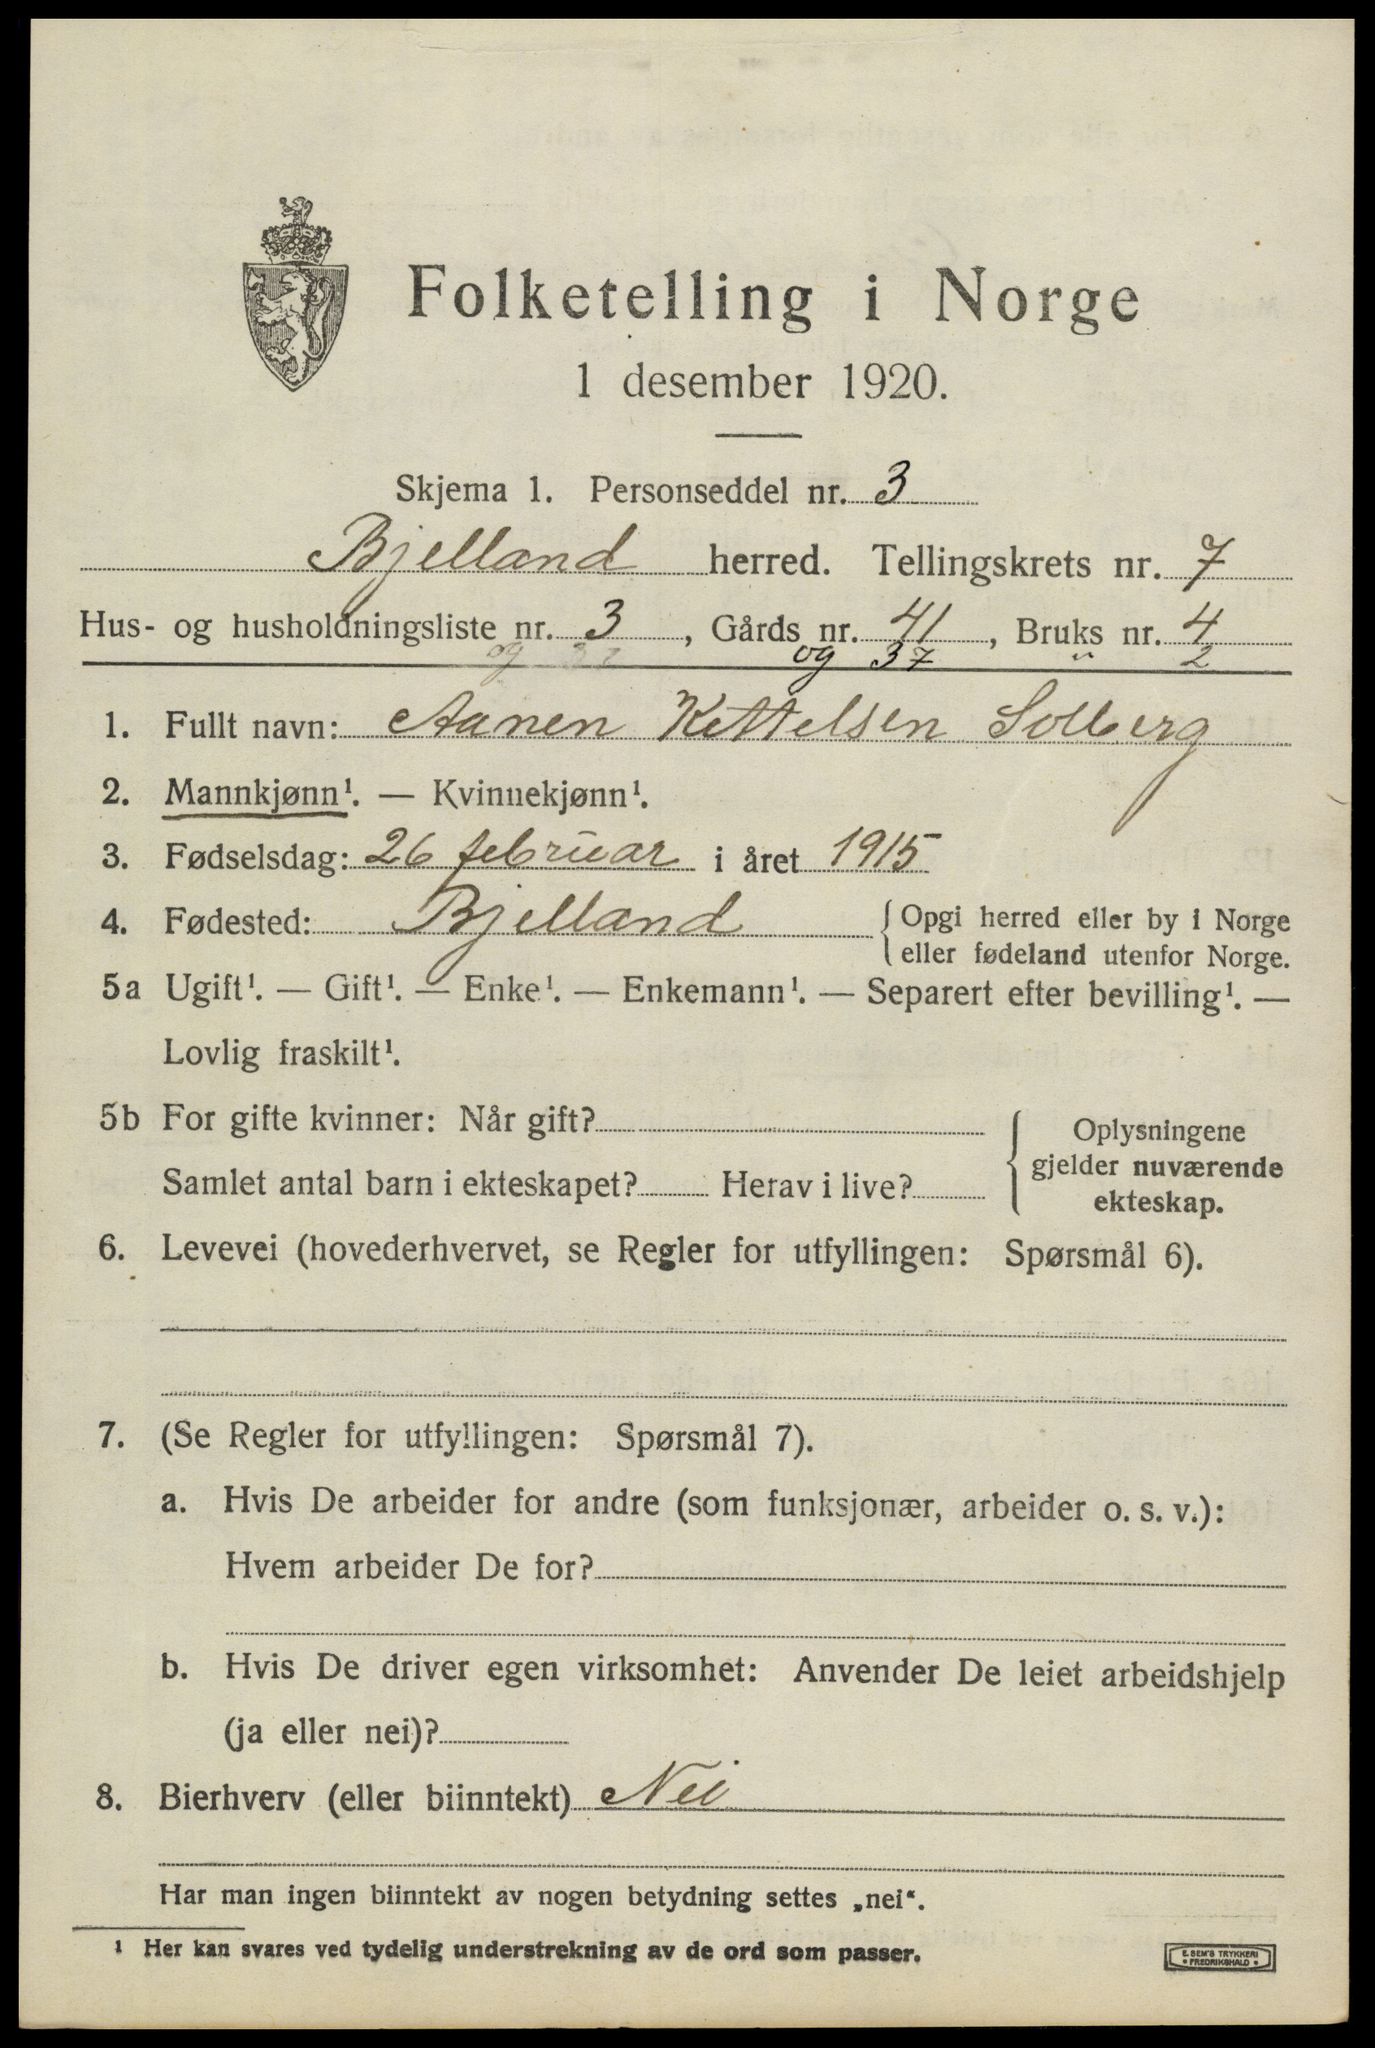 Folketelling i Norge
1 desember 1920.
Skjema 1. Personseddel nr. 3
Bjelland herred. Tellingskrets nr. 7
Hus- og husholdningsliste nr. 3, Gårds nr. 41, Bruks nr. 4
og 37 og 37 " 2
1. Fullt navn: Aanen Kettelsen Solberg
2. Mannkjønn¹. — Kvinnekjønn¹.
3. Fødselsdag: 26 februar i året 1915
4. Fødested: Bjelland { Opgi herred eller by i Norge
eller fødeland utenfor Norge.
5a Ugift¹. — Gift¹. — Enke¹. — Enkemann¹. — Separert efter bevilling¹. —
Lovlig fraskilt¹.
5b For gifte kvinner: Når gift? { Oplysningene
gjelder nuværende
Samlet antal barn i ekteskapet? Herav i live?
ekteskap.
6. Levevei (hovederhvervet, se Regler for utfyllingen: Spørsmål 6).
7. (Se Regler for utfyllingen: Spørsmål 7).
a. Hvis De arbeider for andre (som funksjonær, arbeider o. s. v.):
Hvem arbeider De for?
b. Hvis De driver egen virksomhet: Anvender De leiet arbeidshjelp
(ja eller nei)?
8. Bierhverv (eller biinntekt) Nei
Har man ingen biinntekt av nogen betydning settes „nei“.
¹ Her kan svares ved tydelig understrekning av de ord som passer.
E. SEM'S TRYKKERI
• FREDRIKSHALD •